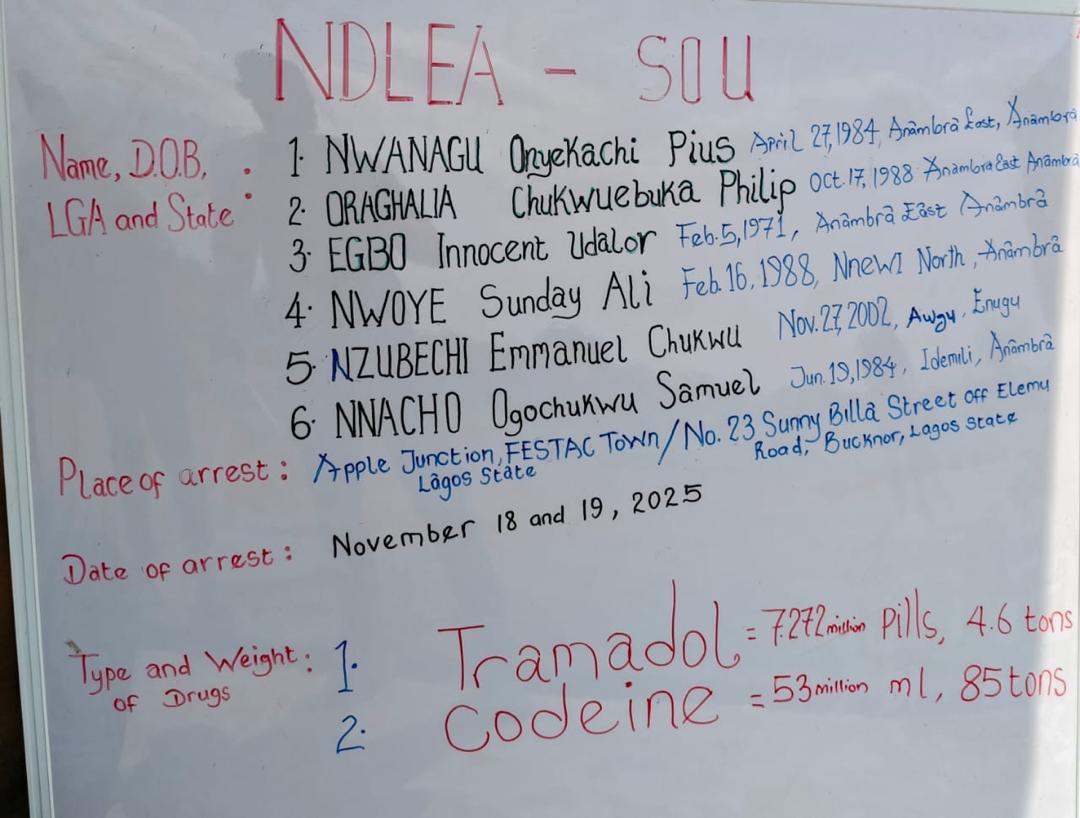 NDLEA - SOU
Name, D.O.B, :
LGA and State :
1. NWANAGU Onyekachi Pius April 27, 1984, Anambra East, Anambra
2. ORAGHALIA Chukwuebuka Philip Oct. 17, 1988 Anambra East Anambra
3. EGBO Innocent Udalor Feb. 5, 1971, Anambra East Anambra
4. NWOYE Sunday Ali Feb. 16, 1988, Nnewi North, Anambra
5. NZUBECHI Emmanuel Chukwu Nov. 27, 2002, Awgu, Enugu
6. NNACHO Ogochukwu Samuel Jun. 19, 1984, Idemili, Anambra
Place of arrest: Apple Junction, FESTAC Town / No. 23 Sunny Billa Street off Elemu
Lagos State Road, Bucknor, Lagos State
Date of arrest: November 18 and 19, 2025
Type and Weight: 1. Tramadol = 7.272 million Pills, 4.6 tons
of Drugs
2. Codeine = 53 million ml, 85 tons